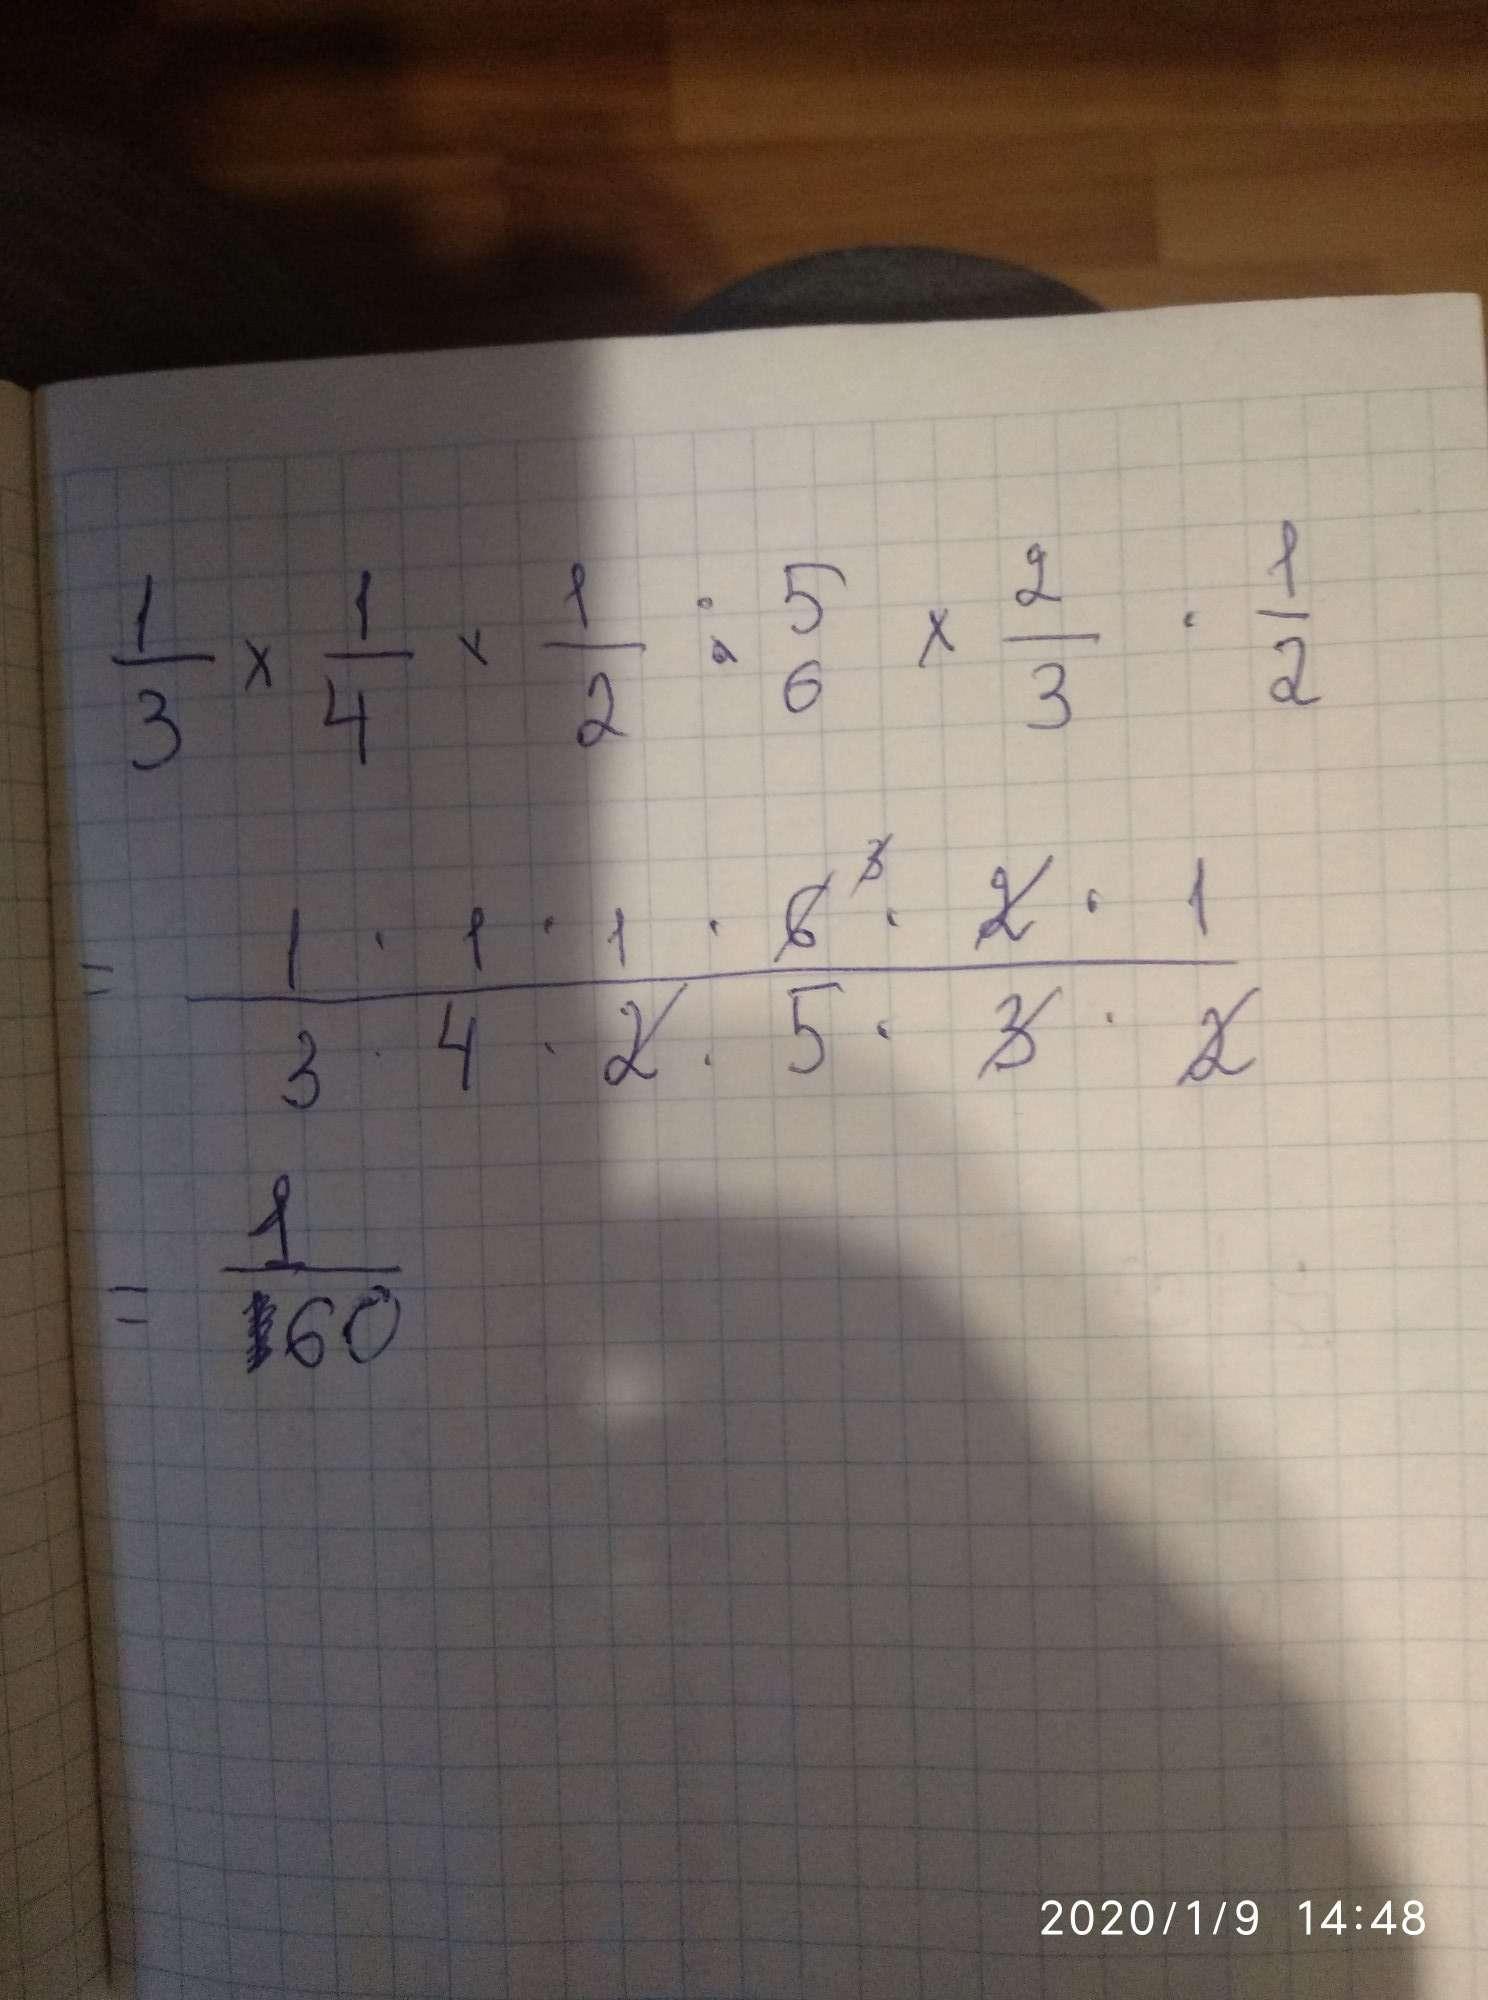 1/3 × 1/4 × 1/2 : 5/6 × 2/3 · 1/2
= 1 · 1 · 1 · 6 3 · 2 · 1 / 3 · 4 · 2 · 5 · 3 · 2
= 1/60
2020/1/9 14:48